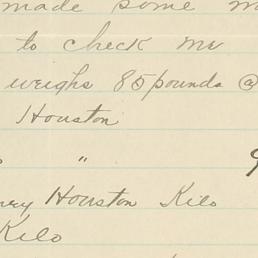 made some m
to check me
weighs 85 pounds @
Houston
"
ney Houston Kilo
Kilo